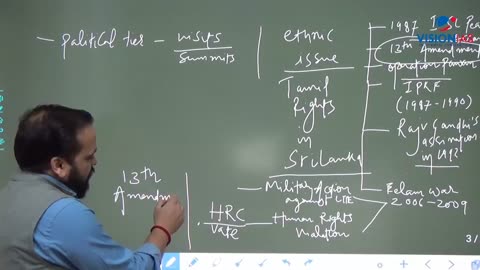 - political ties - visits
Summits
13th
Amendm
ethnic
issue
Tamil
Rights
in
Sri Lanka
- Military action
against LTTE
HRC
vote
Human Rights
violation
1987
13th Amendment
operation Pawan
IPKF
(1987-1990)
Rajiv Gandhi's
assassination
in
Eelam war
2006-2009
VISION
31